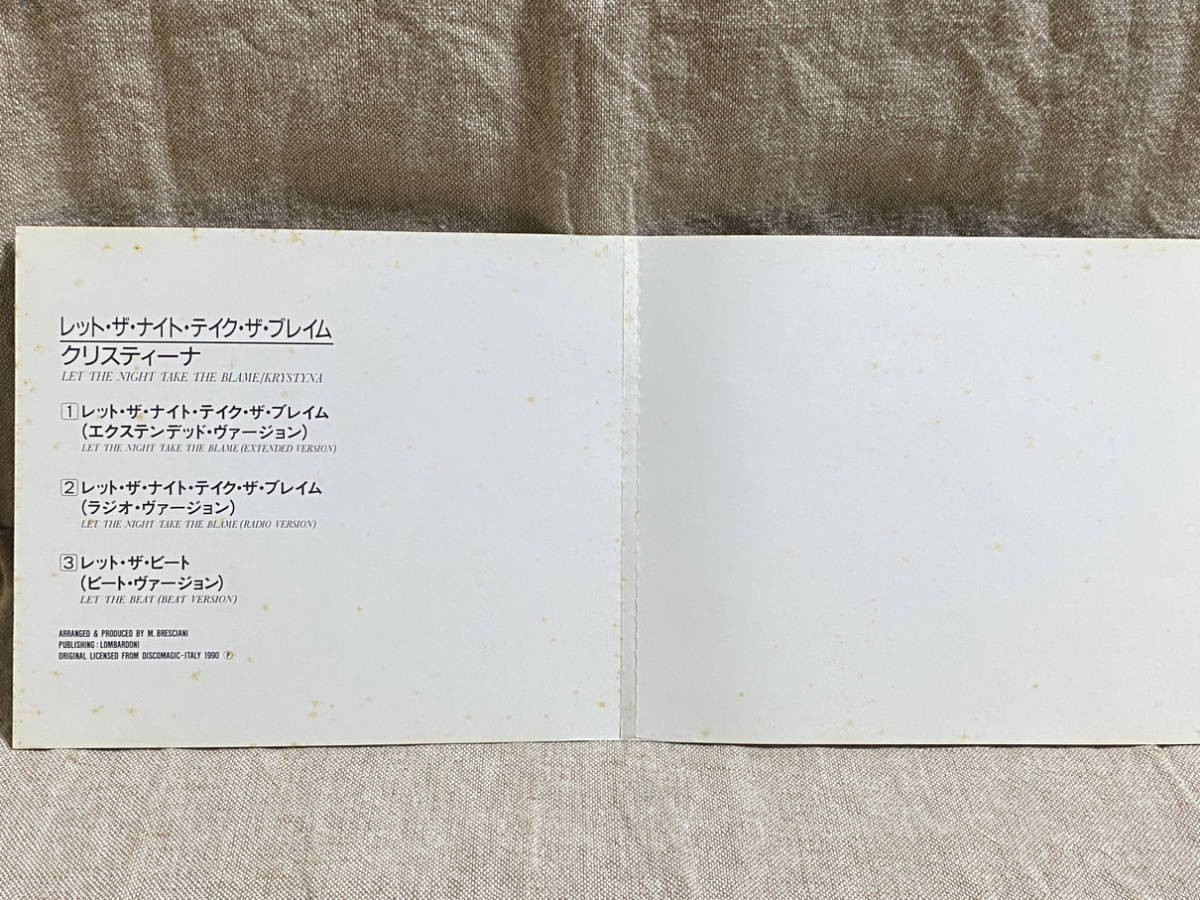 レット・ザ・ナイト・テイク・ザ・ブレイム
クリスティーナ
LET THE NIGHT TAKE THE BLAME/KRYSTYNA
1 レット・ザ・ナイト・テイク・ザ・ブレイム
(エクステンデッド・ヴァージョン)
LET THE NIGHT TAKE THE BLAME (EXTENDED VERSION)
2 レット・ザ・ナイト・テイク・ザ・ブレイム
(ラジオ・ヴァージョン)
LET THE NIGHT TAKE THE BLAME (RADIO VERSION)
3 レット・ザ・ビート
(ビート・ヴァージョン)
LET THE BEAT (BEAT VERSION)
ARRANGED & PRODUCED BY M. BRESCIANI
PUBLISHING : LOMBARDONI
ORIGINAL LICENSED FROM DISCOMAGIC-ITALY 1990 Ⓟ